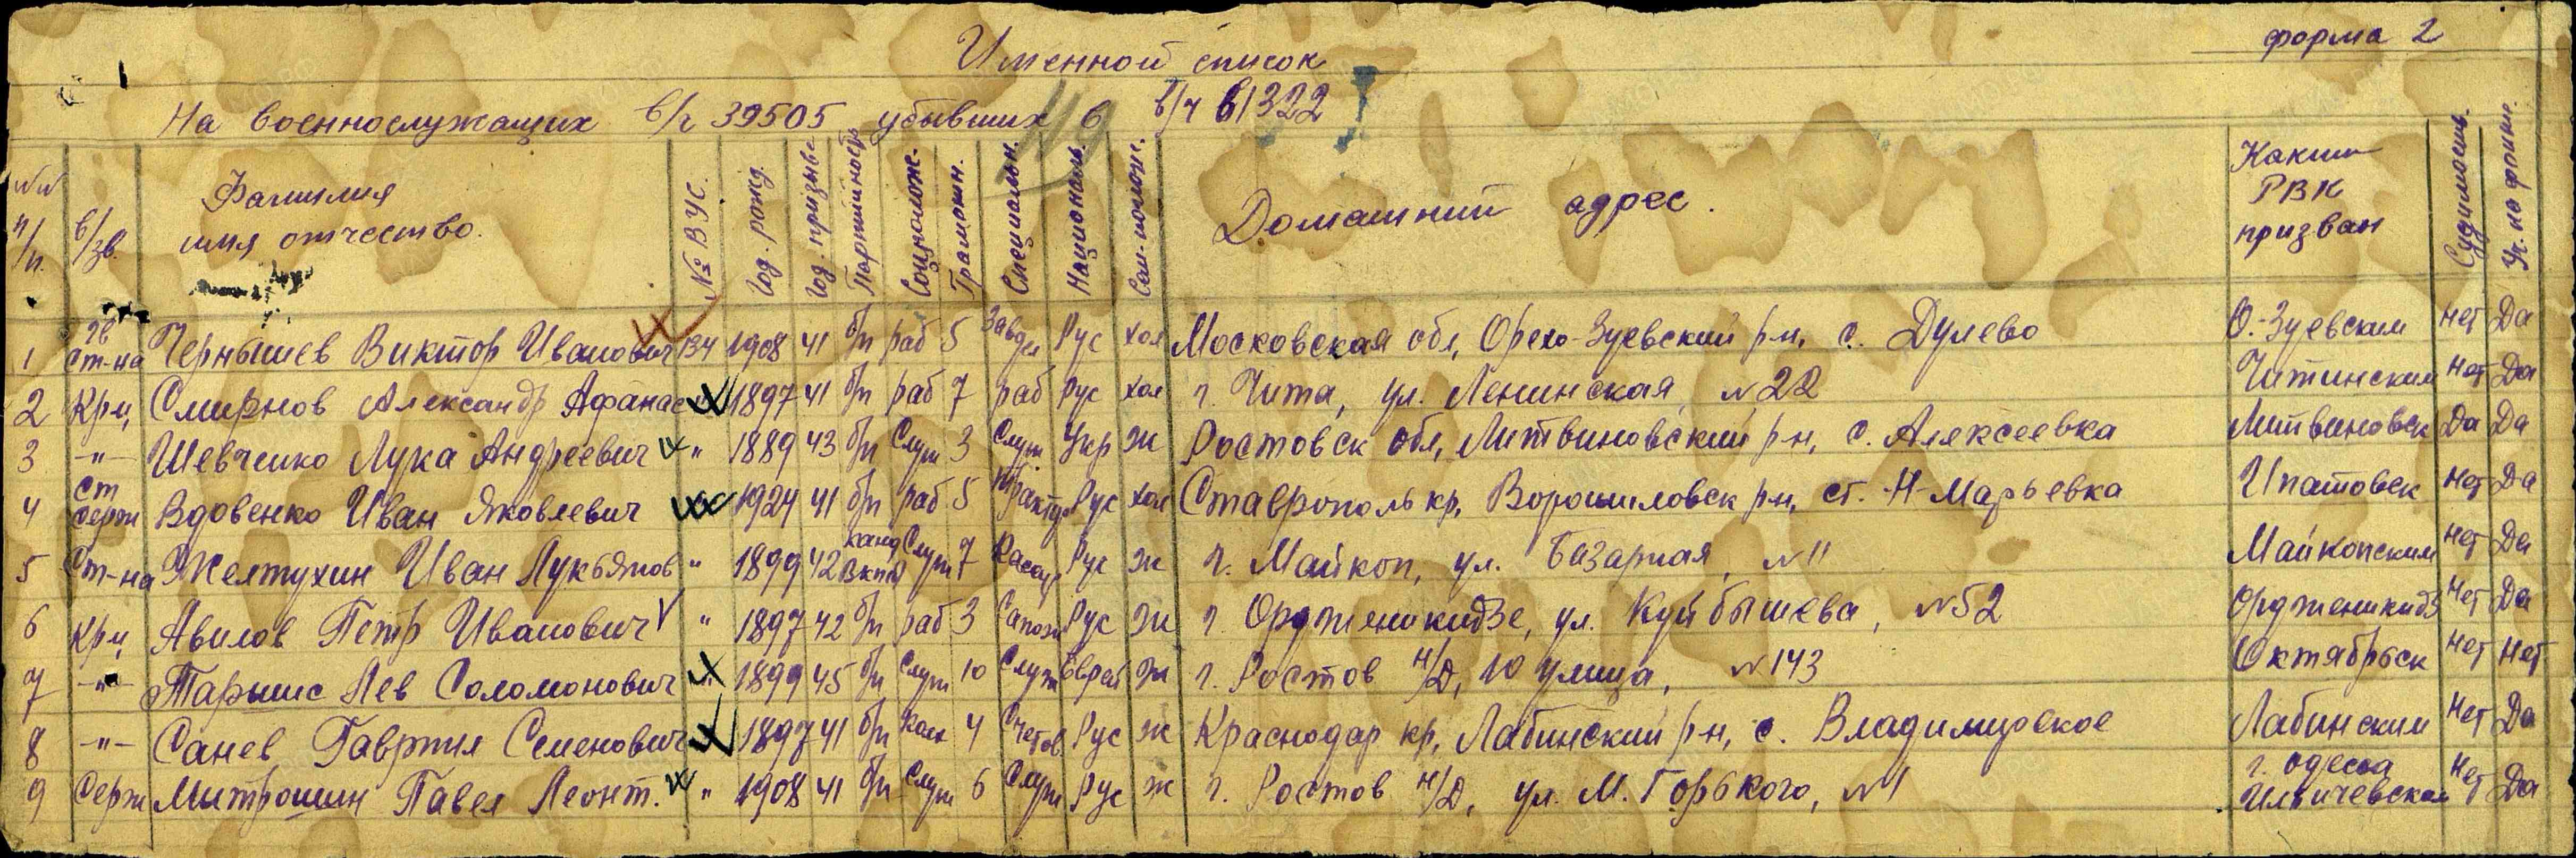 форма 2
Именной список
На военнослужащих в/ч 39505 убывших в в/ч 61322
№№ п/п. в/зв. Фамилия имя отчество. № ВУС. Год. рожд. Год. призыв. Партийность Соцполож. Грамотн. Специальн. Националь. Сем-полож. Домашний адрес. Каким РВК призван Судимость. Уч. на фронте.
1 гв ст-на Чернышев Виктор Иванович 134 1908 41 б/п раб 5 Завдел Рус хол Московская обл, Орехо-Зуевский р-н, с. Дулево О.-Зуевским нет Да
2 Кр-ц Смирнов Александр Афанас " 1897 41 б/п раб 7 раб Рус хол г. Чита, ул. Ленинская, №22 Читинским Нет Да
3 -"- Шевченко Лука Андреевич " 1889 43 б/п Служ 3 Служ Укр ж Ростовск обл, Литвиновский р-н, с. Алексеевка Литвиновск Да Да
4 ст серж Вдовенко Иван Яковлевич " 1924 41 б/п раб 5 Рус хол Ставрополь кр, Ворошиловск р-н, ст. Н-Марьевка Ипатовск Нет Да
5 Ст-на Желтухин Иван Лукьянов " 1899 42 канд ВКПб Служ 7 Рус ж г. Майкоп, ул. Базарная, №11 Майкопским нет Да
6 Кр-ц Авилов Петр Иванович " 1897 42 б/п раб 3 Сапож Рус ж г Орджоникидзе, ул. Куйбышева, №52 Орджоникидз Нет Да
7 -"- Тарышис Лев Соломонович " 1899 45 б/п Служ 10 Служ Еврей ж г. Ростов н/Д, 10 улица, №143 Октябрьск Нет Нет
8 -"- Санев Гавриил Семенович " 1897 41 б/п Колх 4 Счетов Рус ж Краснодар кр, Лабинский р-н, с. Владимировское Лабинским Нет Да
9 Серж Митрошин Павел Леонт. " 1908 41 б/п Служ 6 Служ Рус ж г. Ростов н/Д, ул. М. Горького, №1 г. Одесса Ильичевским Нет Да